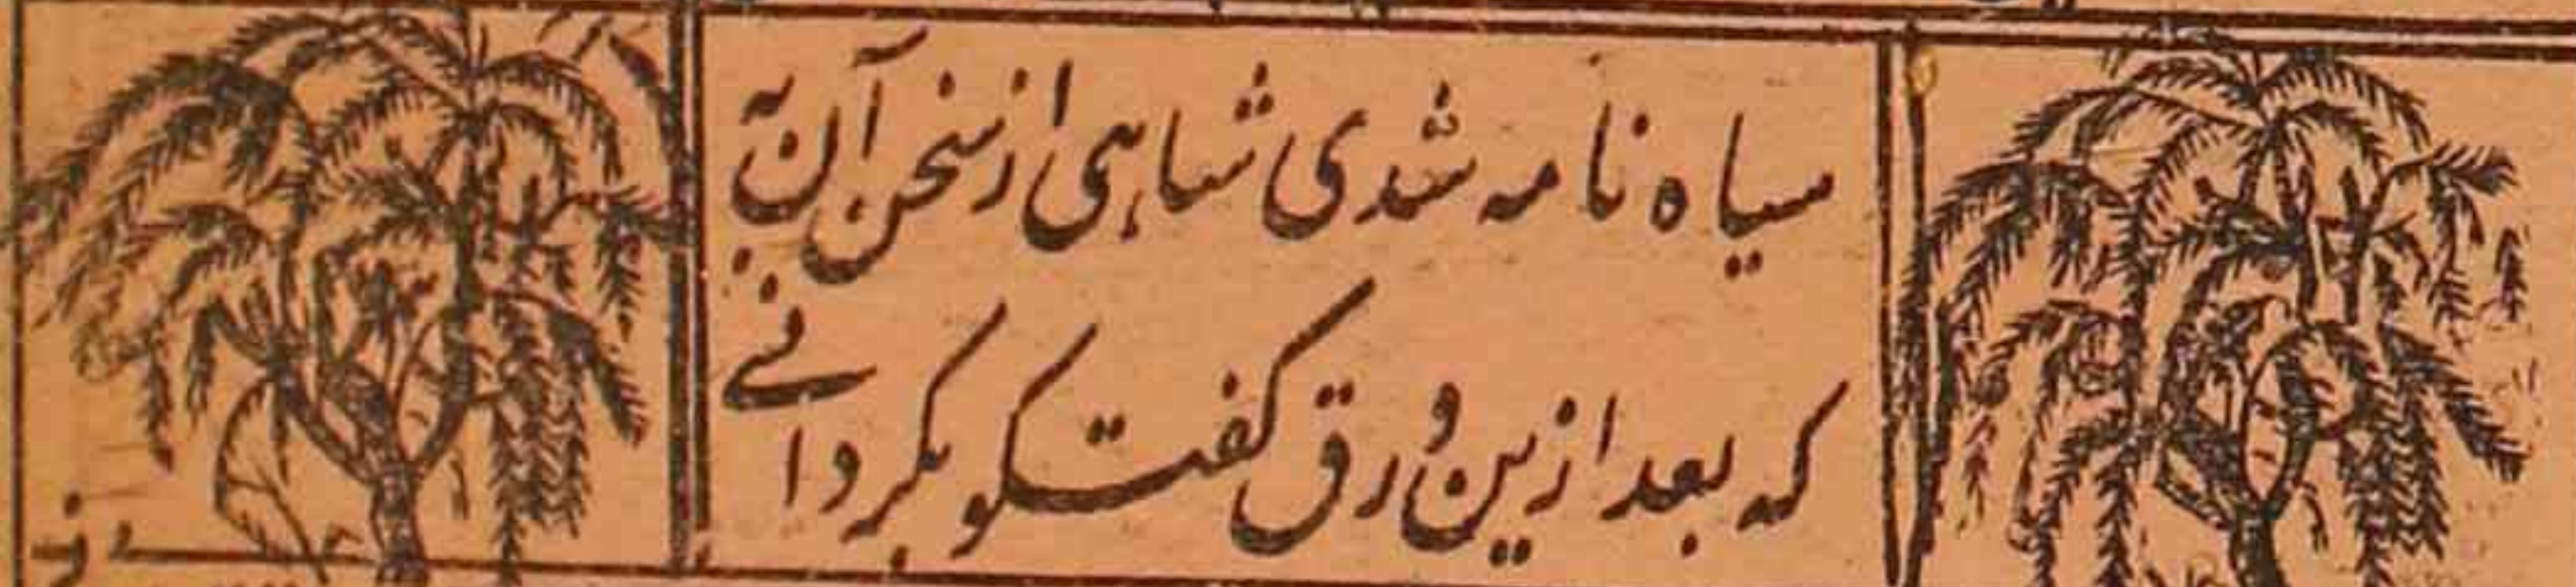 سیاه نامه شدی شاهی از سخن آن به
که بعد ازین ورق گفتگو بگردانی